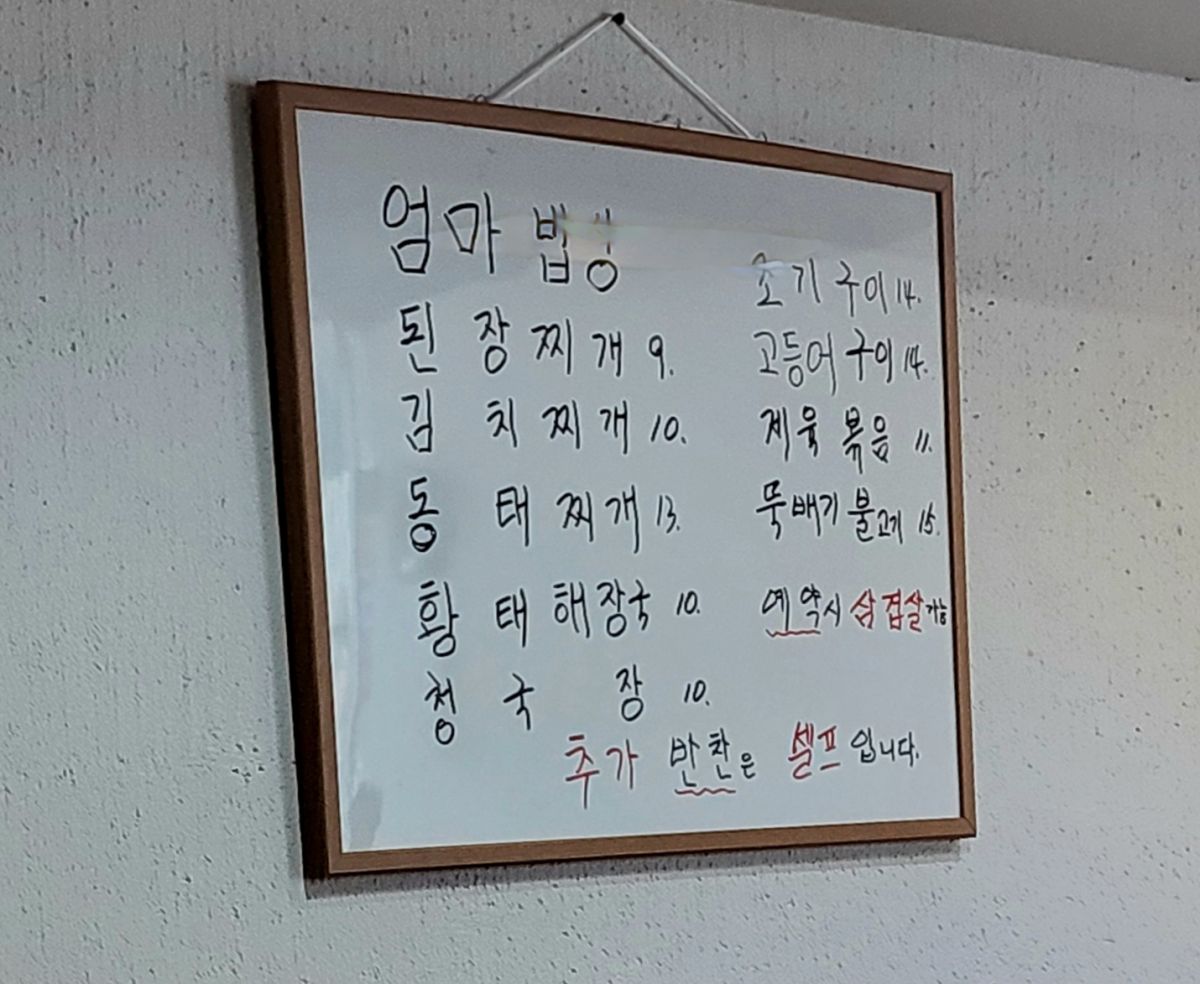 엄마 밥상
된장찌개 9.
김치찌개 10.
동태찌개 13.
황태해장국 10.
청국장 10.
조기 구이 14.
고등어 구이 14.
제육 볶음 11.
뚝배기 불고기 15.
예약시 삼겹살 가능
추가 반찬은 셀프입니다.